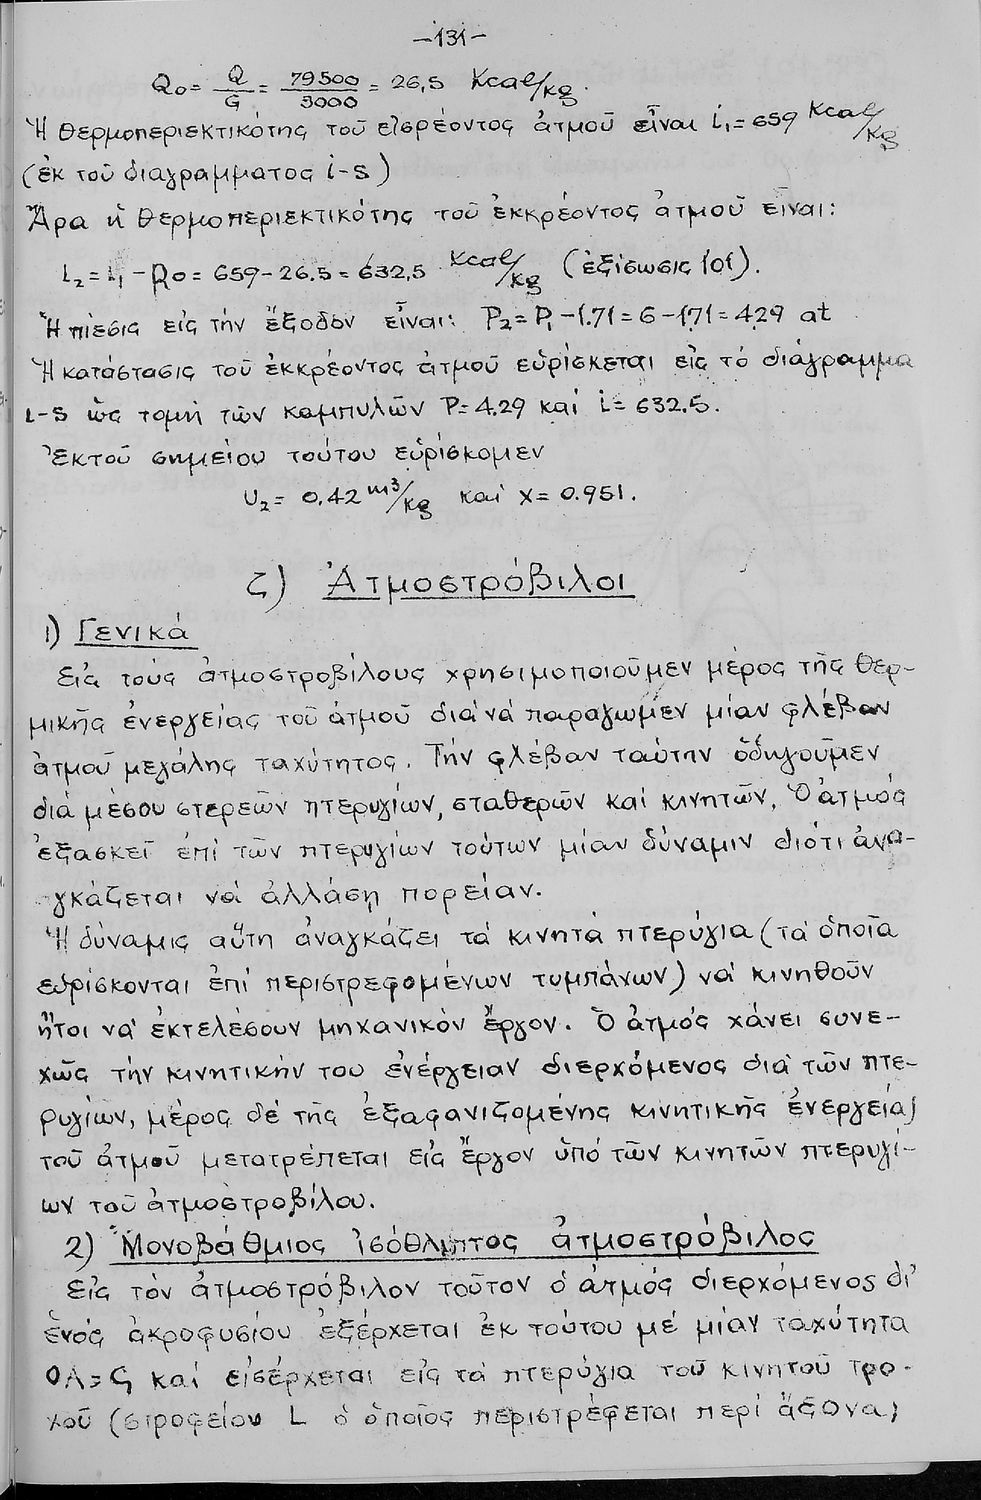 -131-
Q₀ = Q/G = 79500/3000 = 26,5 Kcal/kg.
Ἡ θερμοπεριεκτικότης τοῦ εἰσρέοντος ἀτμοῦ εἶναι i₁ = 659 Kcal/kg
(ἐκ τοῦ διαγράμματος i-s)
Ἄρα ἡ θερμοπεριεκτικότης τοῦ ἐκκρέοντος ἀτμοῦ εἶναι:
i₂ = i₁ - Q₀ = 659 - 26.5 = 632,5 Kcal/kg (ἐξίσωσις 101).
Ἡ πίεσις εἰς τήν ἔξοδον εἶναι: P₂ = P₁ - 1.71 = 6 - 1.71 = 4.29 at
Ἡ κατάστασις τοῦ ἐκκρέοντος ἀτμοῦ εὑρίσκεται εἰς τό διάγραμμα
i-s ὡς τομή τῶν καμπυλῶν P = 4.29 καί i = 632.5.
Ἐκ τοῦ σημείου τούτου εὑρίσκομεν
υ₂ = 0.42 m³/kg καί x = 0.951.
ζ) Ἀτμοστρόβιλοι
1) Γενικά
Εἰς τούς ἀτμοστροβίλους χρησιμοποιοῦμεν μέρος τῆς θερ-
μικῆς ἐνεργείας τοῦ ἀτμοῦ διά νά παραγωμεν μίαν φλέβαν
ἀτμοῦ μεγάλης ταχύτητος. Τήν φλέβαν ταύτην ὁδηγοῦμεν
διά μέσου στερεῶν πτερυγίων, σταθερῶν καί κινητῶν. Ὁ ἀτμός
ἐξασκεῖ ἐπί τῶν πτερυγίων τούτων μίαν δύναμιν διότι ἀνα-
γκάζεται νά ἀλλάσῃ πορείαν.
Ἡ δύναμις αὕτη ἀναγκάζει τά κινητά πτερύγια (τά ὁποῖα
εὑρίσκονται ἐπί περιστρεφομένων τυμπάνων) νά κινηθοῦν
ἤτοι νά ἐκτελέσουν μηχανικόν ἔργον. Ὁ ἀτμός χάνει συνε-
χῶς τήν κινητικήν του ἐνέργειαν διερχόμενος διά τῶν πτε-
ρυγίων, μέρος δέ τῆς ἐξαφανιζομένης κινητικῆς ἐνεργείας
τοῦ ἀτμοῦ μετατρέπεται εἰς ἔργον ὑπό τῶν κινητῶν πτερυγί-
ων τοῦ ἀτμοστροβίλου.
2) Μονοβάθμιος ἰσόθλιπτος ἀτμοστρόβιλος
Εἰς τόν ἀτμοστρόβιλον τοῦτον ὁ ἀτμός διερχόμενος δι'
ἑνός ἀκροφυσίου ἐξέρχεται ἐκ τούτου μέ μίαν ταχύτητα
OA = C₁ καί εἰσέρχεται εἰς τά πτερύγια τοῦ κινητοῦ τρο-
χοῦ (στροφείου L ὁ ὁποῖος περιστρέφεται περί ἄξονα,